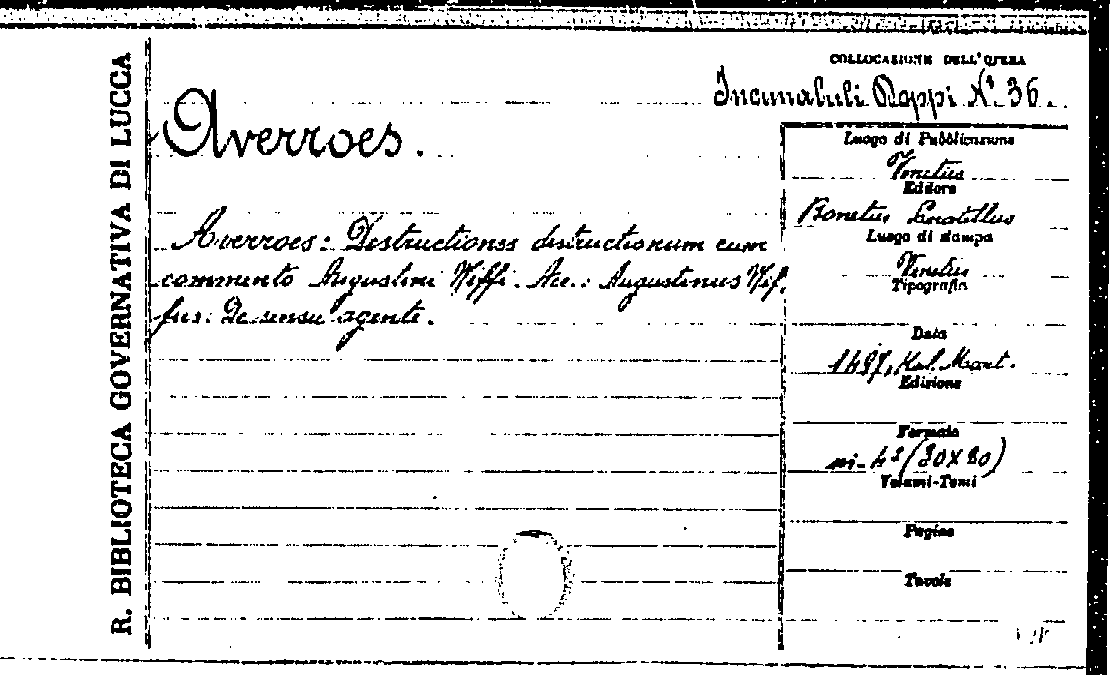 R. BIBLIOTECA GOVERNATIVA DI LUCCA
COLLOCAZIONE DELL'OPERA
Incunabuli Poppi N.º 36.
Averroes.
Averroes: Destructiones destructionum cum
commento Augustini Niffi. Acc.: Augustinus Nif.
fus: De sensu agente.
Luogo di Pubblicazione
Venetiis
Editore
Bonetus Locatellus
Luogo di stampa
Venetiis
Tipografia
Data
1497, Kal. Mart.
Edizione
Formato
in-4º (30x20)
Volumi-Tomi
Pagine
Tavole